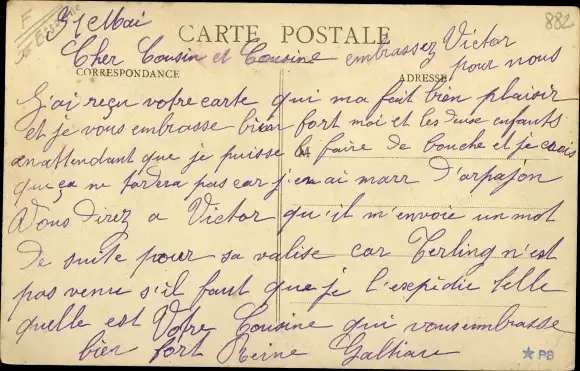 31 Mai
882
CARTE POSTALE
Cher Cousin et Cousine embrassez Victor
pour nous
CORRESPONDANCE
ADRESSE
J'ai reçu votre carte qui ma fait bien plaisir
et je vous embrasse bien fort moi et les deux enfants
enattendant que je puisse le faire de bouche et je crois
que ça ne tardera pas car j'en ai marr d'arpajon
Vous direz a Victor qu'il m'envoie un mot
de suite pour sa valise car Terling n'est
pas venu s'il faut que je l'expédie telle
quelle est Votre Cousine qui vous embrasse
bien fort Reine
PB